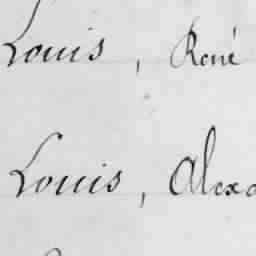 Louis, René
Louis, Alex